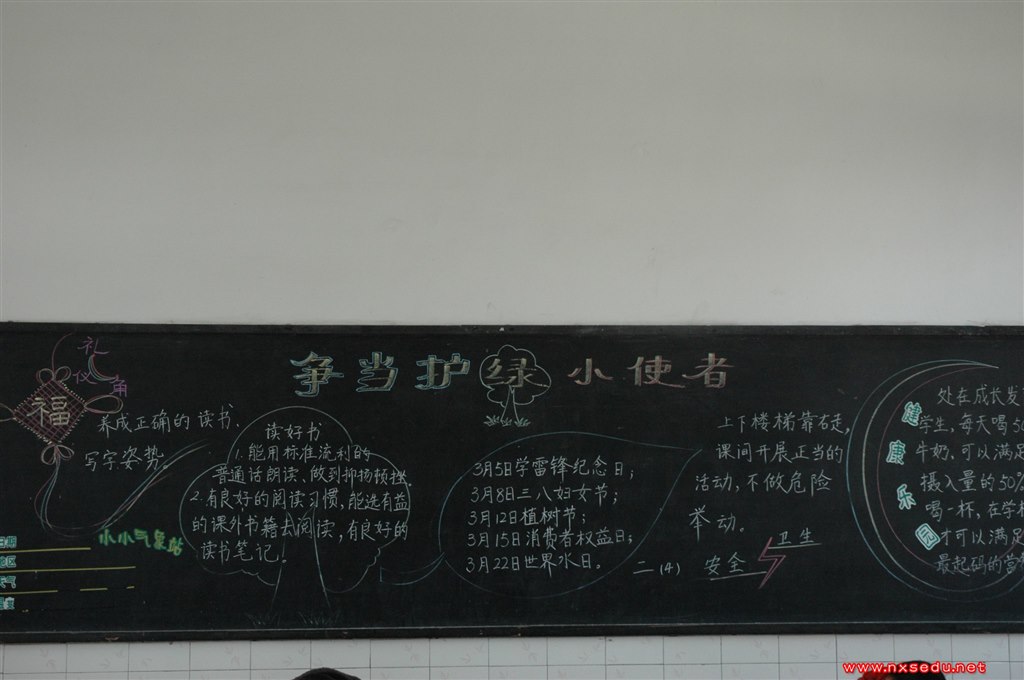 争当护绿小使者
礼
仪
角
福
养成正确的读书、
写字姿势。
小小气象站
读好书
1.能用标准流利的
普通话朗读、做到抑扬顿挫。
2.有良好的阅读习惯,能选有益
的课外书籍去阅读,有良好的
读书笔记!
3月5日学雷锋纪念日;
3月8日三八妇女节;
3月12日植树节;
3月15日消费者权益日;
3月22日世界水日。
上下楼梯靠右走,
课间开展正当的
活动,不做危险
举动。
二(4) 安全
卫生
健
康
乐
园
处在成长发
学生,每天喝50
牛奶,可以满足
摄入量的50%
喝一杯,在学校
才可以满足
最起码的营
www.nxsedu.net